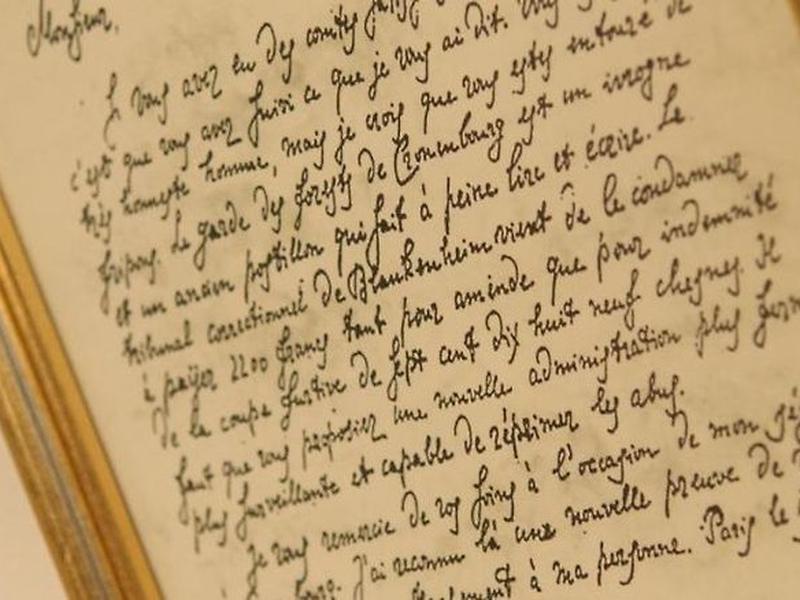 Monsieur,
Si vous avez eu des comtes
c'est que vous avez suivi ce que je vous ai dit. Vous
très honneste homme, mais je crois que vous estes entouré de
fripons. Le garde des forests de Cronenbourg est un ivrogne
et un ancien postillon qui sait à peine lire et écrire. Le
tribunal correctionnel de Blankenheim vient de le condamner
à païyer 2200 francs tant pour amende que pour indemnité
de la coupe furtive de sept cent dix huit neuf chesnes. Il
faut que vous proposiez une nouvelle administration plus
plus surveillante et capable de réprimer les abus.
Je vous remercie de vos soins à l'occasion de mon
J'ai reconnu là une nouvelle preuve de
à ma personne. Paris le